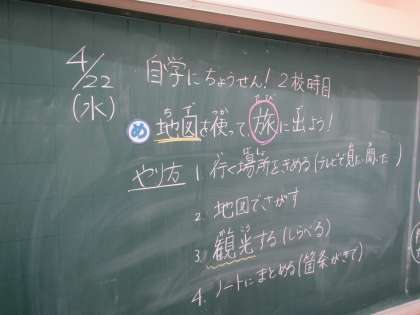 4/22
(水)
自学にちょうせん! 2校時目
め 地図を使って、旅に出よう!
やり方 1. 行く場所をきめる(テレビで見た、聞いた )
2. 地図でさがす
3. 観光する(しらべる)
4. ノートにまとめる(箇条がきで)